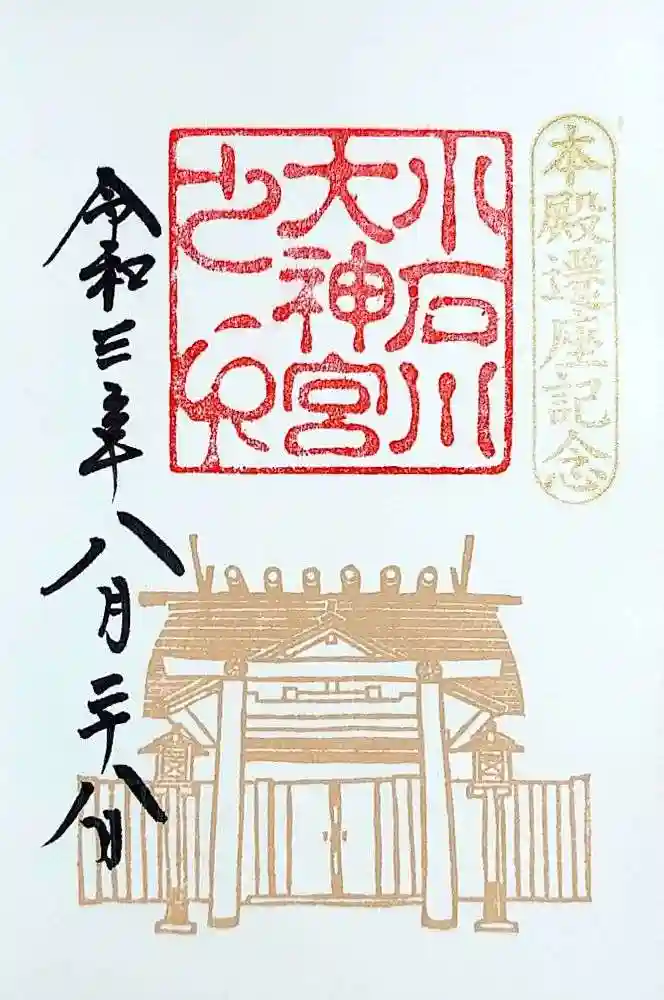 本殿遷座記念
小石川
大神宮
之印
令和三年八月二十八日